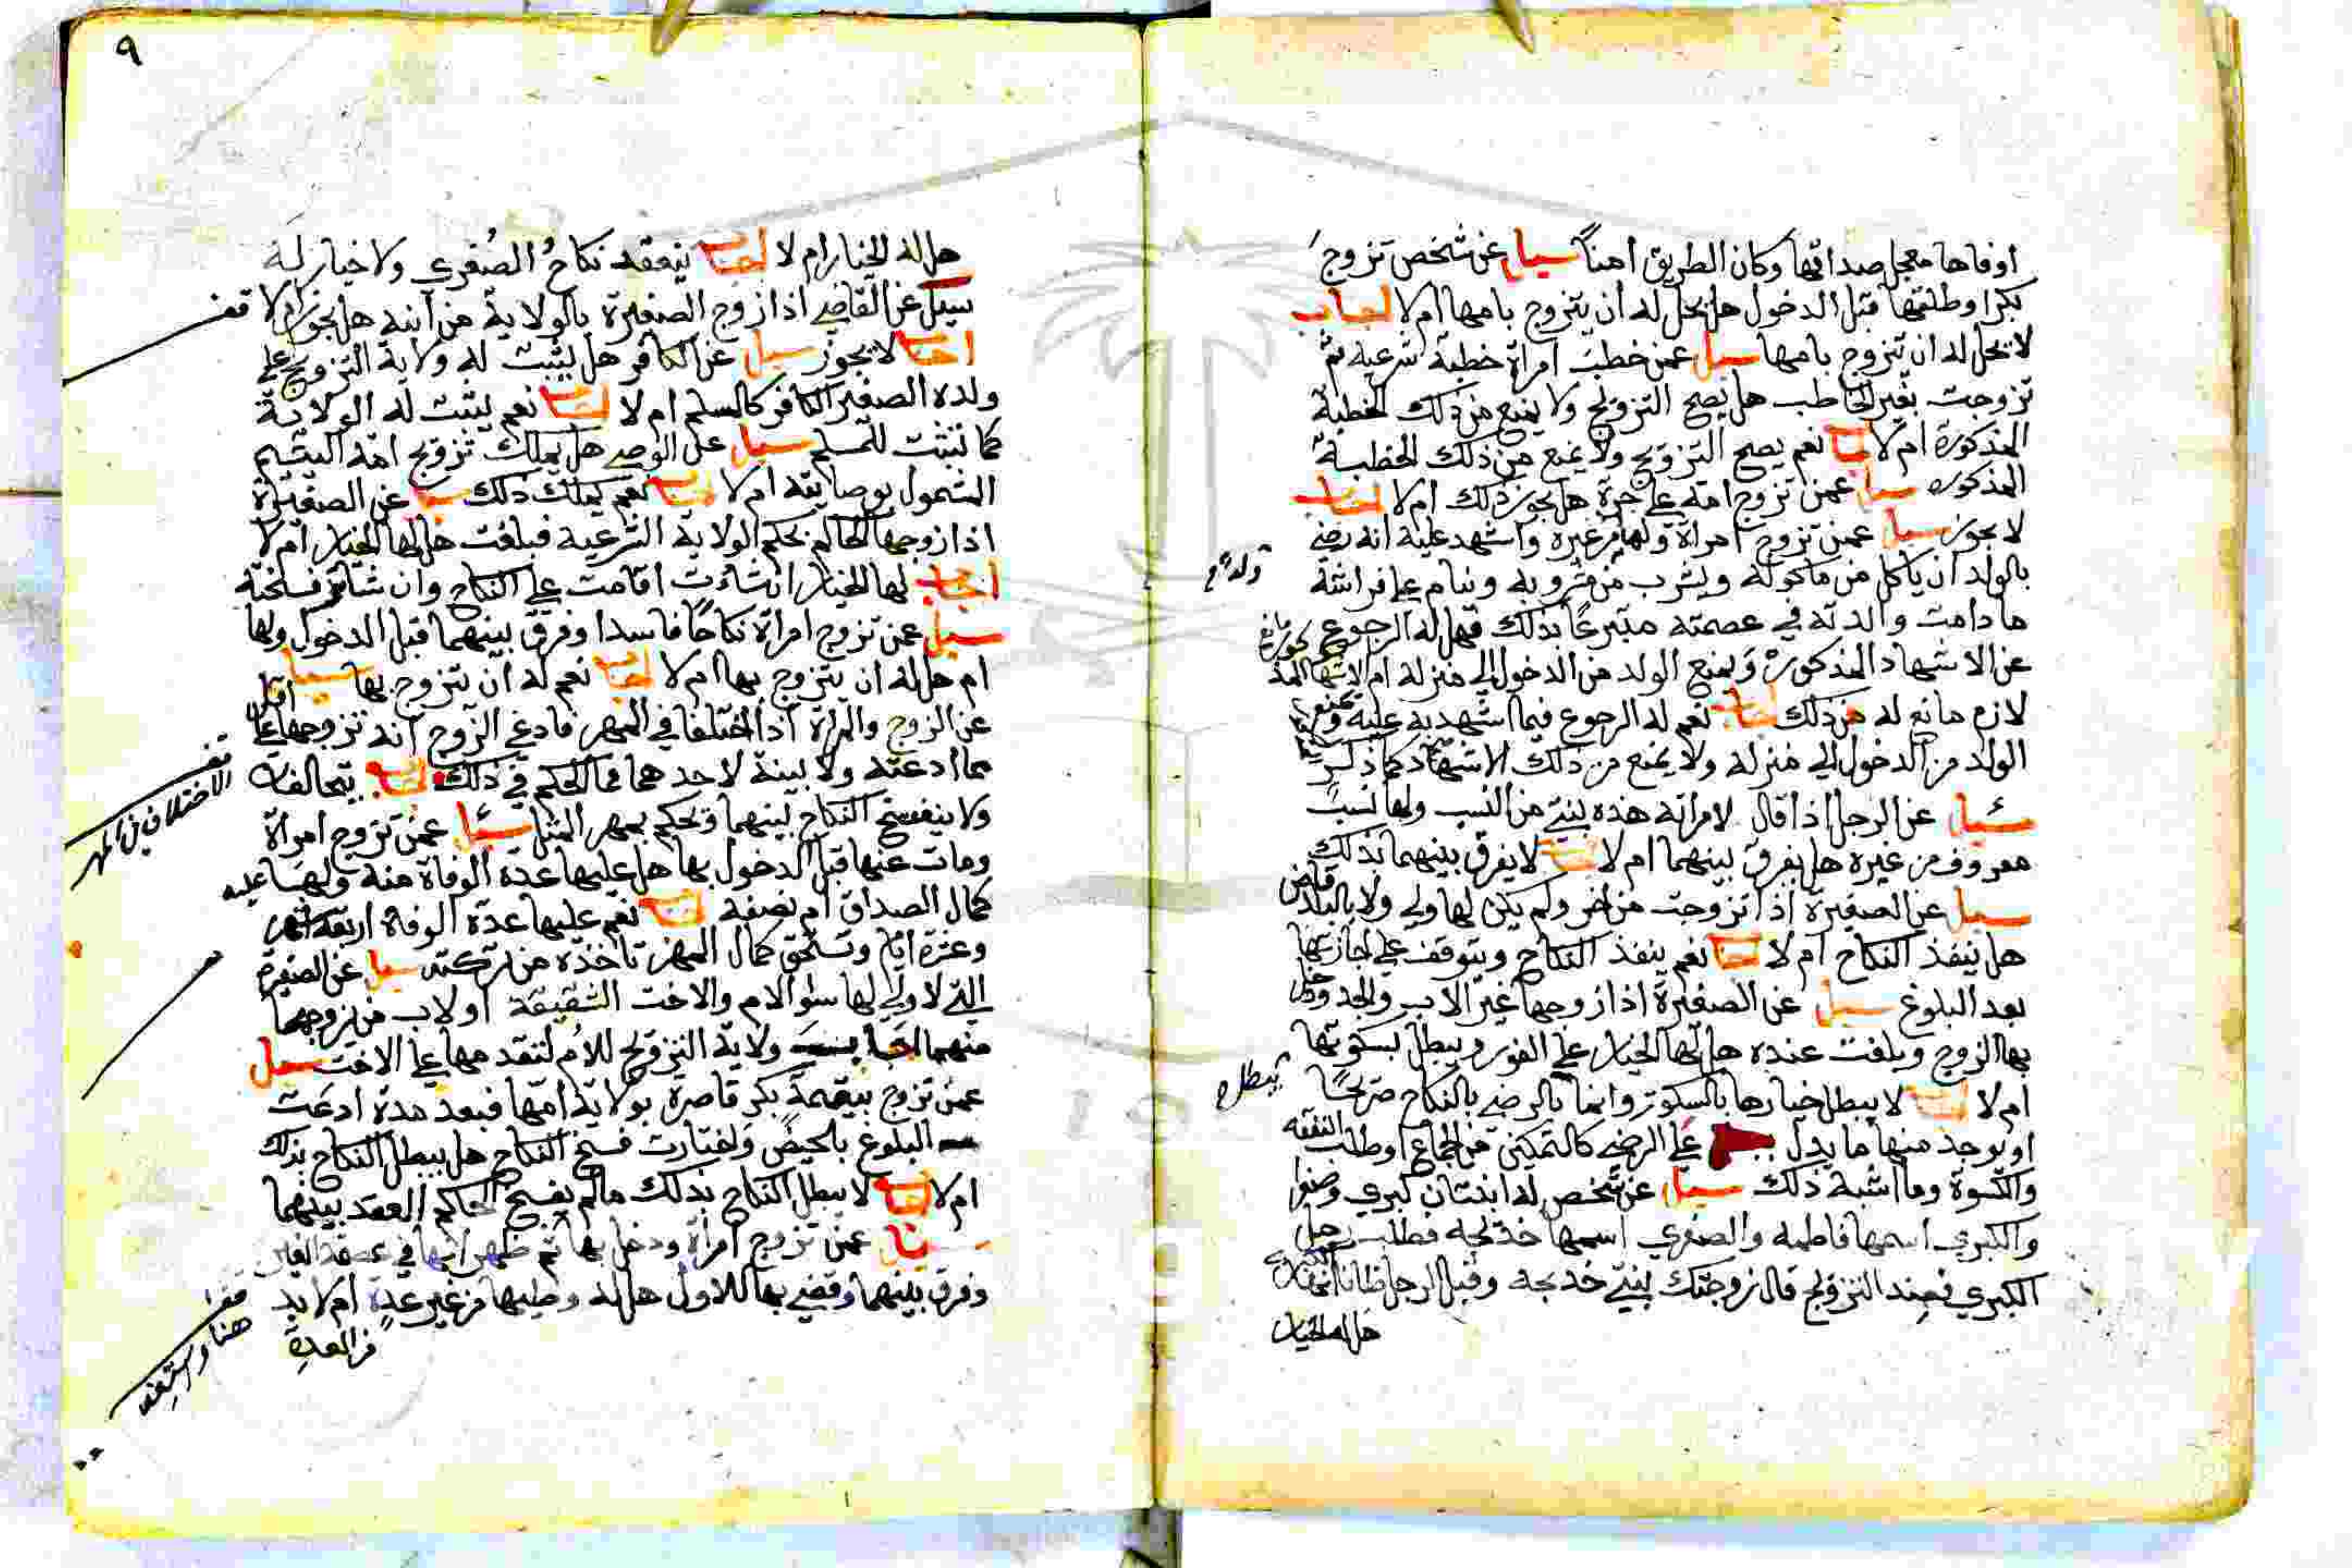 اوفاها معجل صداقها وكان الطريق امناً سيل عن شخص تزوج
بكرا وطلقها قبل الدخول هل يحل له ان يتزوج بامها ام لا اجاب
لا يحل له ان تيزوج بامها سيل عمن خطب امراة خطبة شرعية ثم
تزوجت بغير الخاطب هل يصح التزويج ولا يمنع من ذلك الخطبة
المذكورة ام لا اجاب نعم يصح التزويج ولا يمنع من ذلك الخطبة
المذكوره سيل عمن تزوج امة على حرة هل يجوز ذلك ام لا اجاب
لا يجوز سيل عمن تزوج امراة ولها من غيره واشهد عليه انه رضي
ولد صح
بالولد ان ياكل من ماكوله ويشرب من مشروبه وينام على فراشه
ما دامت والدته في عصمته متبرعاً بذلك فهل له الرجوع
عن الاشهاد المذكور ويمنع الولد من الدخول الى منزله ام الاشهاد
لازم مانع له من ذلك اجاب نعم له الرجوع فيما اشهد به عليه ويمنع
الولد من الدخول الى منزله ولا يمنع من ذلك الاشهاد كما ذكر
سئيل عن الرجل اذا قال لامراته هذه بنتي من النسب ولها نسب
معروف من غيره هل يفرق بينهما ام لا اجاب لا يفرق بينهما بذلك
سيل عن الصغيرة اذا تزوجت من اخر ولم يكن لها ولي ولا بالبلد قاض
هل ينفذ النكاح ام لا اجاب نعم ينفذ النكاح ويتوقف على اجازتها
بعد البلوغ سيل عن الصغيرة اذا زوجها غير الاب والجد ودخل
بها الزوج وبلغت عنده هل لها الخيار على الفور ويبطل بسكوتها
يبطل ح
ام لا اجاب لا يبطل خيارها بالسكوت وانما بالرضى بالنكاح صريحاً
او يوجد منها ما يدل على الرضى كالتمكين من الجماع او طلب النفقة
والكسوة وما اشبه ذلك سيل عن شخص له ابنتان كبرى وصغرى
والكبرى اسمها فاطمه والصغرى اسمها خديجه فطلب رجل
الكبرى فعند التزويج قال زوجتك بنتي خديجه وقبل الرجل ظانا انها الكبرى
هل له الخيار
٩
هل له الخيار ام لا اجاب ينعقد نكاح الصغرى ولا خيار له
سيل عن القاضي اذا زوج الصغيرة بالولاية من ابنه هل يجوز ام لا
قف
اجاب لا يجوز سيل عن الكافر هل يثبت له ولاية التزويج على
ولده الصغير الكافر كالمسلم ام لا اجاب نعم يثبت له الولاية
كما تثبت للمسلم سيل عن الوصي هل يملك تزويج امة اليتيم
المشمول بوصايته ام لا اجاب نعم يملك ذلك سيل عن الصغيرة
اذا زوجها الحاكم بحكم الولاية الشرعية فبلغت هل لها الخيار ام لا
اجاب لها الخيار ان شاءت اقامت على النكاح وان شات فسخته
سيل عمن تزوج امراة نكاحاً فاسدا وفرق بينهما قبل الدخول بها
ام هل له ان يتزوج بها ام لا اجاب نعم له ان يتزوج بها سيل
عن الزوج والمراة اذا اختلفا في المهر فادعى الزوج انه تزوجها على اقل
مما ادعته ولا بينة لاحدهما فما الحكم في ذلك اجاب يتحالفان
قف
الاختلاف في المهر
ولا ينفسخ النكاح بينهما ويحكم بمهر المثل سئيل عمن تزوج امراة
ومات عنها قبل الدخول بها هل عليها عدة الوفاة منه ولها عليه
كمال الصداق ام نصفه اجاب نعم عليها عدة الوفاة اربعة اشهر
وعشرة ايام وتستحق كمال المهر تاخذه من تركته سيل عن الصغيرة
التي لا ولي لها سوا الام والاخت الشقيقة او لاب من يزوجها
منهما اجاب ولاية التزويج للام لتقدمها على الاخت سيل
عمن تزوج بيتيمة بكر قاصرة بولاية امها فبعد مدة ادعت
البلوغ بالحيض واختارت فسخ النكاح هل يبطل النكاح بذلك
ام لا اجاب لا يبطل النكاح بذلك مالم يفسخ الحاكم العقد بينهما
سيل عمن تزوج امراة ودخل بها ثم ظهر انها في عصمة الغير
وفرق بينهما وقضي بها للاول هل له وطيها من غير عدة ام لا بد
من العدة
قف
هنا